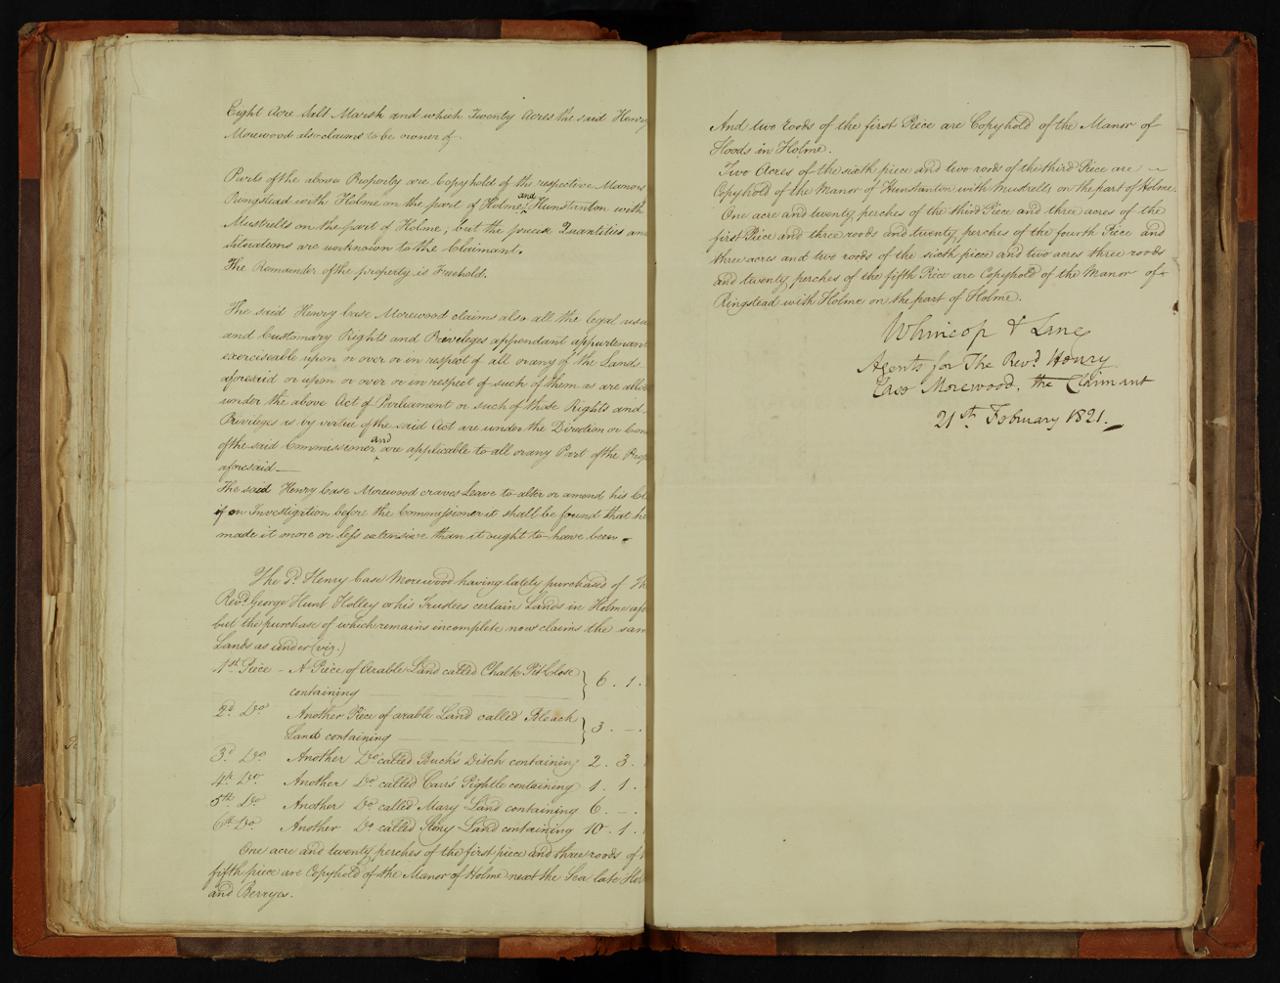 Eight Acre Salt Marsh and which Twenty Acres the said Henry
Morewood also claims to be owner of.
Parts of the above Property are Copyhold of the respective Manors
Ringstead with Holme on the part of Holme and Hunstanton with
Mustrells on the part of Holme; but the precise Quantities an
Situations are unknown to the Claimant.
The Remainder of the property is Freehold.
The said Henry Case Morewood claims also all the legal usu
and Customary Rights and Privileges appendant appurtenant
exerciseable upon or over or in respect of all or any of the Lands
aforesaid or upon or over or in respect of such of them as are allo
under the above Act of Parliament or such of those Rights and
Privileges as by virtue of the said Act are under the Direction or
of the said Commissioner and are applicable to all or any Part of the Prop
aforesaid
The said Henry Case Morewood craves Leave to alter or amend his Cl
if on Investigation before the Commissioner it shall be found that he
made it more or less extensive than it ought to have been
The sd. Henry Case Morewood having lately purchased of Th
Revd. George Hunt Holley or his Trustees certain Lands in Holme afo
but the purchase of which remains incomplete now claims the sam
Lands as under (viz.)
1st. Piece - A Piece of Arable Land called Chalk Pit Close } 6 . 1 .
containing
2d. Do. Another Piece of arable Land called Bleach } 3 . - .
Land containing
3d. Do. Another Do. called Buck's Ditch containing 2 . 3 .
4th. Do. Another Do. called Carr's Pightle containing 1 . 1 .
5th. Do. Another Do. called Mary Land containing 6 . - .
6th. Do. Another Do. called Stony Land containing 10 . 1 .
One acre and twenty perches of the first piece and three roods of
fifth piece are Copyhold of the Manor of Holme next the Sea late
and Berrys.
And two roods of the first Piece are Copyhold of the Manor of
Hoods in Holme.
Two Acres of the sixth piece and two rood of the third Piece are
Copyhold of the Manor of Hunstanton with Mustrells on the part of Holme.
One acre and twenty perches of the third Piece and three acres of the
first Piece and three roods and twenty perches of the fourth Piece and
three acres and two roods of the sixth piece and two acres three roods
and twenty perches of the fifth Piece are Copyhold of the Manor of
Ringstead with Holme on the part of Holme.
Whincop & Lane
Agents for The Revd. Henry
Case Morewood, the Claimant
21st. February 1821.